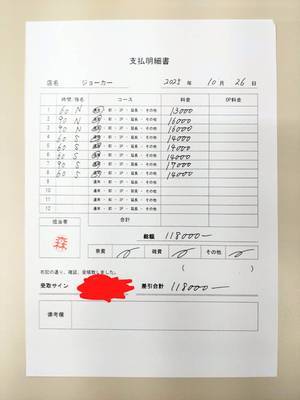 支払明細書
店名 ジョーカー 2025 年 10 月 26 日
時間 指名 コース 料金 OP料金
1 60 N 通常・3P・延長・その他 13000
2 90 N 通常・3P・延長・その他 16000
3 90 N 通常・3P・延長・その他 16000
4 60 S 通常・3P・延長・その他 14000
5 60 S 通常・3P・延長・その他 14000
6 60 S 通常・3P・延長・その他 14000
7 90 S 通常・3P・延長・その他 17000
8 60 S 通常・3P・延長・その他 14000
9 通常・3P・延長・その他
10 通常・3P・延長・その他
11 通常・3P・延長・その他
12 通常・3P・延長・その他
担当者 合計
森
総額 118000-
雑費 その他
右記の通り、確認、受領致しました。 ( )
受取サイン 差引合計 118000-
備考欄